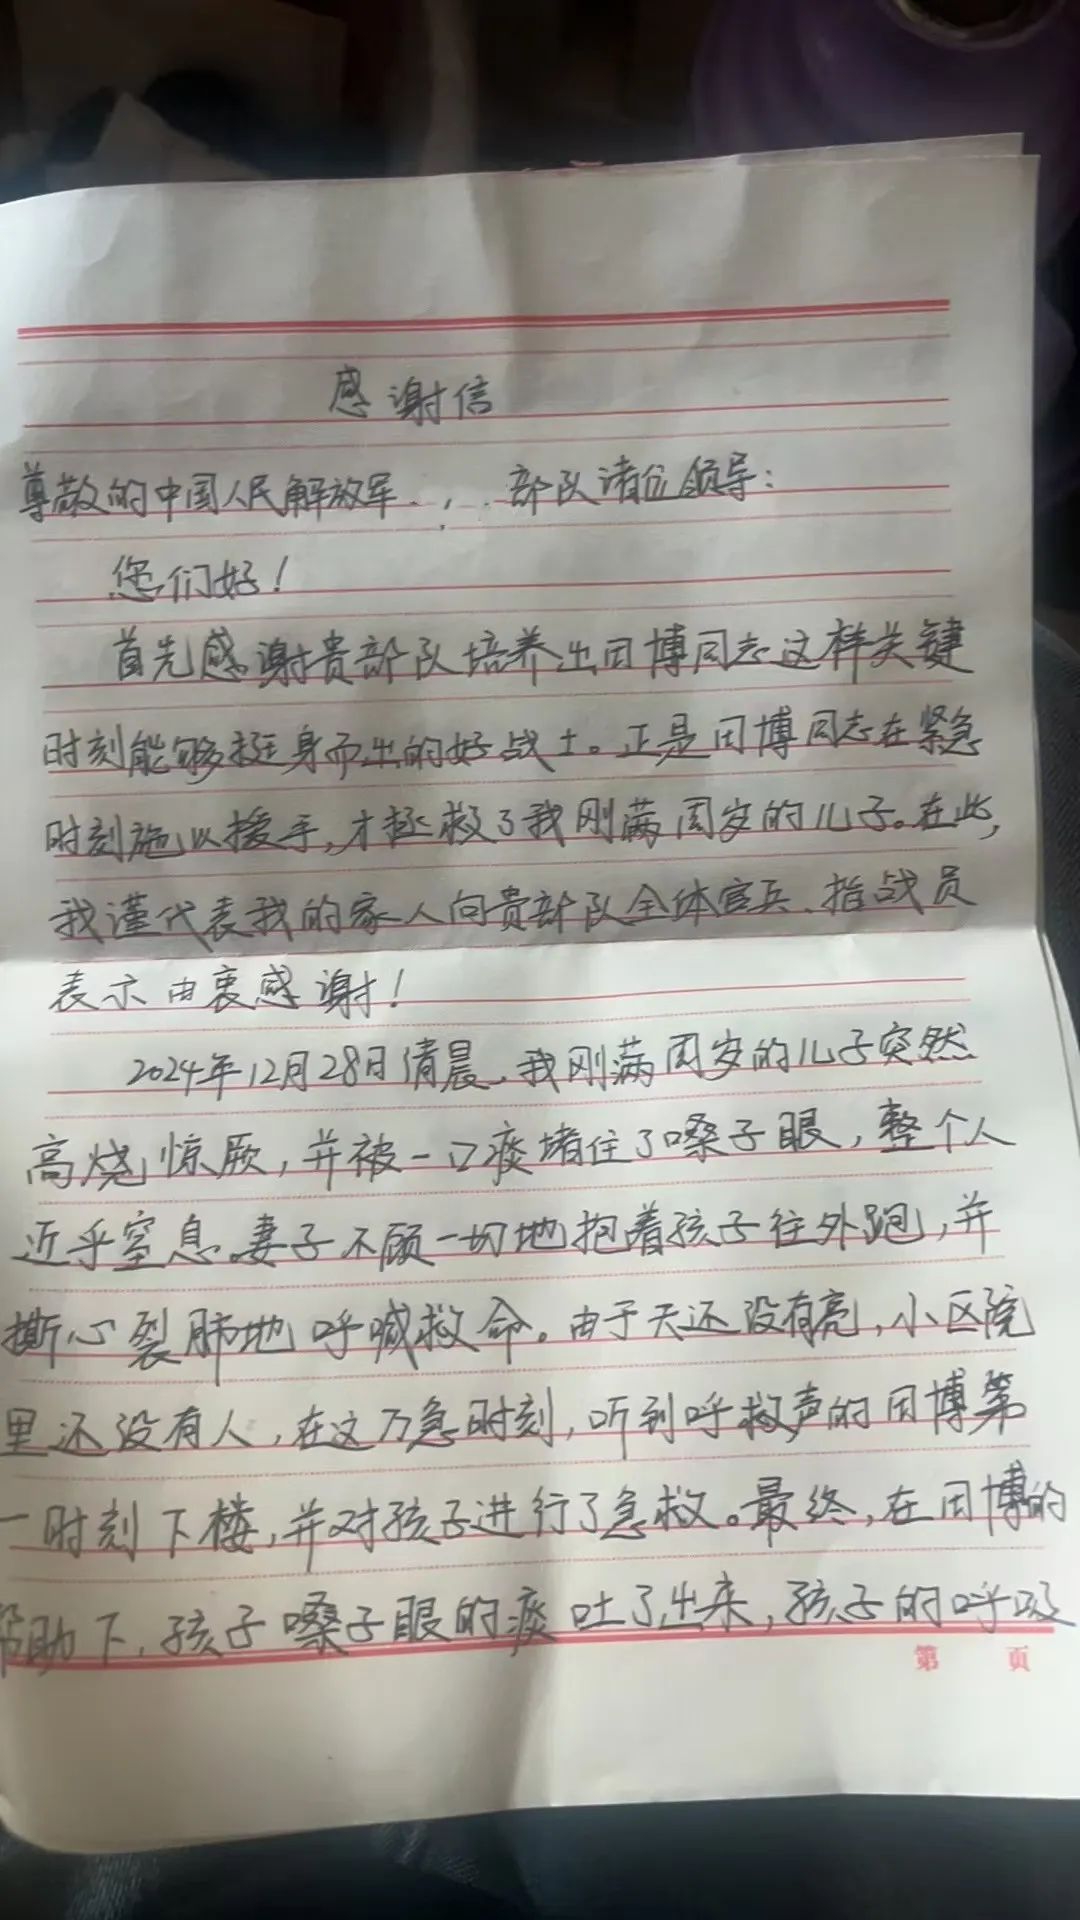 感谢信
尊敬的中国人民解放军 部队诸位领导：
您们好！
首先感谢贵部队培养出田博同志这样关键
时刻能够挺身而出的好战士。正是田博同志在紧急
时刻施以援手，才拯救了我刚满周岁的儿子。在此，
我谨代表我的家人向贵部队全体官兵、指战员
表示由衷感谢！
2024年12月28日清晨，我刚满周岁的儿子突然
高烧惊厥，并被一口痰堵住了嗓子眼，整个人
近乎窒息。妻子不顾一切地抱着孩子往外跑，并
撕心裂肺地呼喊救命。由于天还没有亮，小区院
里还没有人，在这万急时刻，听到呼救声的田博第
一时刻下楼，并对孩子进行了急救。最终，在田博的
帮助下，孩子嗓子眼的痰吐了出来，孩子的呼吸
第 页